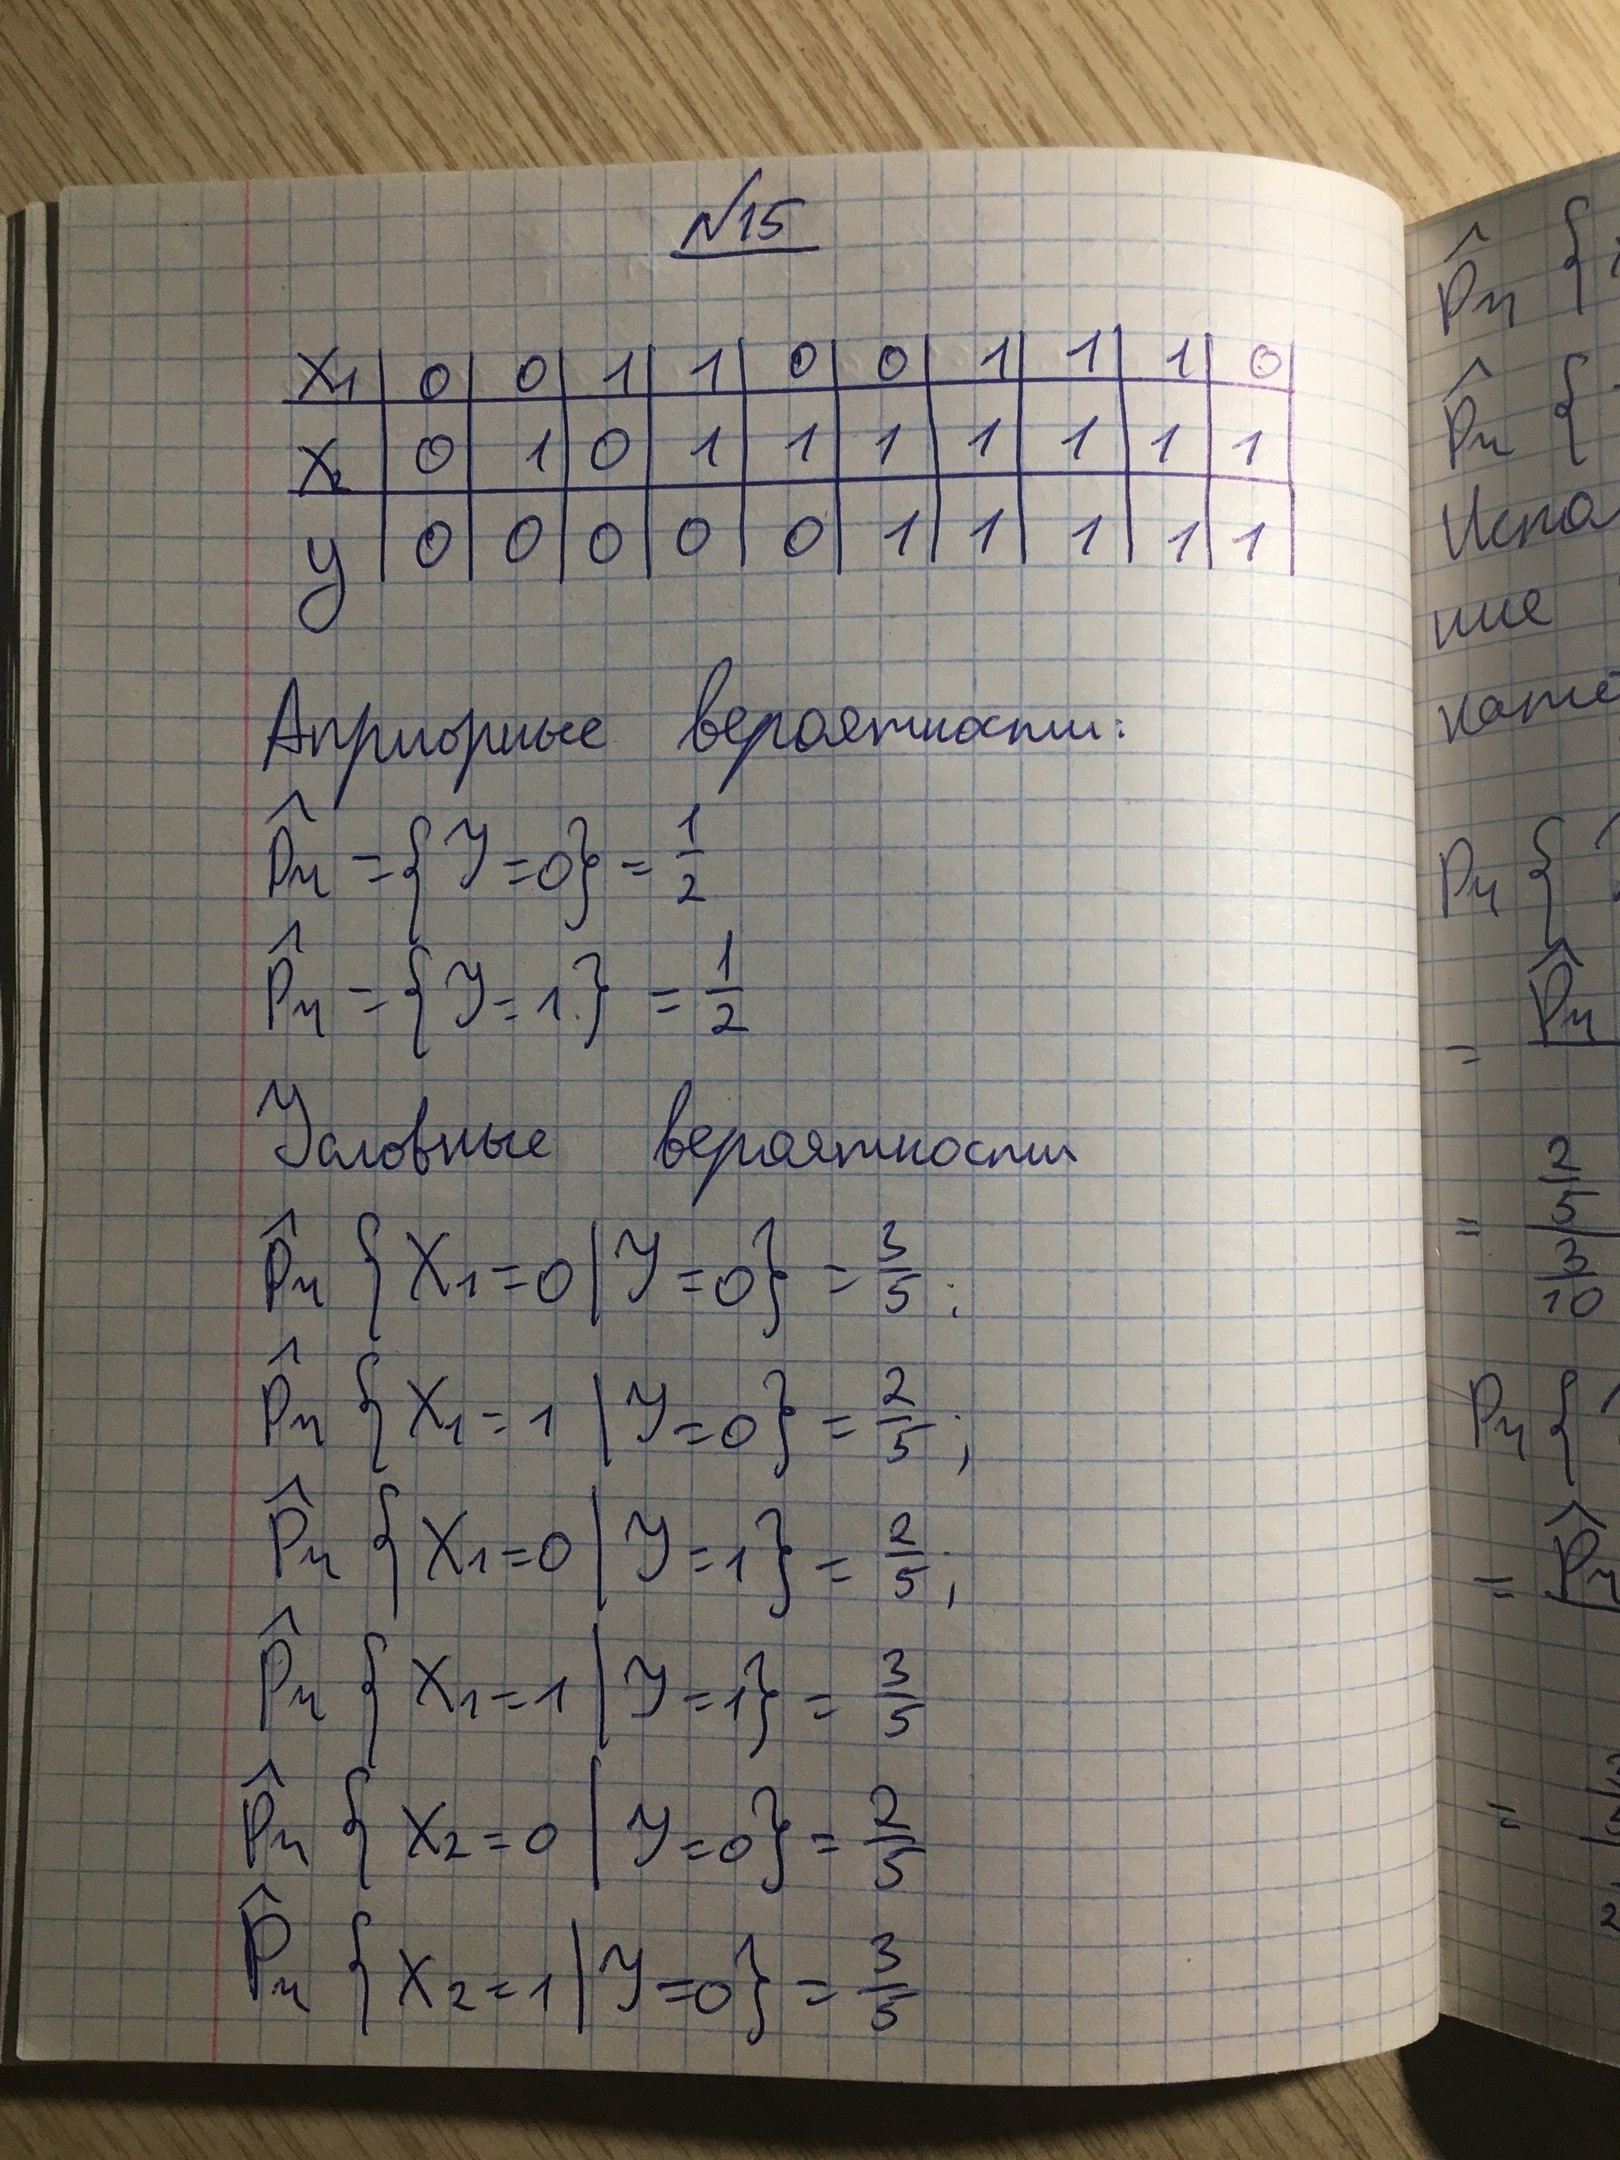 №15
X1 | 0 | 0 | 1 | 1 | 0 | 0 | 1 | 1 | 1 | 0
X2 | 0 | 1 | 0 | 1 | 1 | 1 | 1 | 1 | 1 | 1
y | 0 | 0 | 0 | 0 | 0 | 1 | 1 | 1 | 1 | 1
Априорные вероятности:
P̂r = {Y = 0} = 1/2
P̂r = {Y = 1.} = 1/2
Условные вероятности
P̂r {X1 = 0 | Y = 0} = 3/5;
P̂r {X1 = 1 | Y = 0} = 2/5;
P̂r {X1 = 0 | Y = 1} = 2/5;
P̂r {X1 = 1 | Y = 1} = 3/5
P̂r {X2 = 0 | Y = 0} = 2/5
P̂r {X2 = 1 | Y = 0} = 3/5
P̂r {
P̂r {
Испо
ние
Pr {
= P̂r
= 2/5 / 3/10
Pr {
= P̂r
=
2